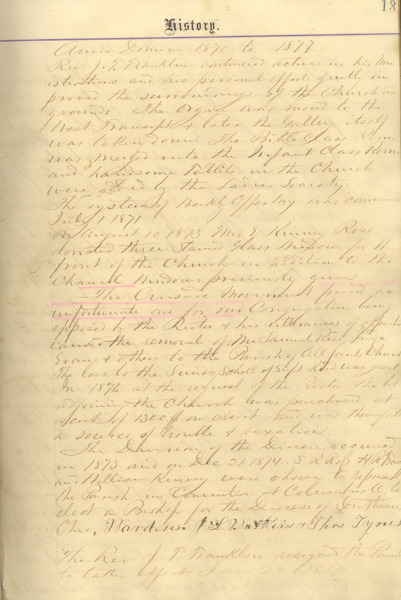 13
History.
Anno Domini 1870 to 1877
Rev. J. T. Franklin continued active in his
and his personal effort greatly im
proved the surroundings of the Church
grounds. The Organ was moved to the
West Transept & later the Gallery itself
was taken down. The Bible Class Room
was merged into the Infant Class Room
and handsome Tablets in the Church
were added by the Ladies Society.
The system of Weekly Offertory was
July 1 1871
On August 10 1873 Mrs E Kinney Ross
donated three Stained Glass Windows for the
front of the Church in addition to the
Chancel Windows previously given
The Crusade Movement proved an
unfortunate one for our Congregation being
opposed by the Rector & his utterances of
caused the removal of Mr Samuel
Evans & others to the Parish of All Saints
The loss to the Sunday School of was great
In 1876 at the request of the Rector the lot
adjoining the Church was purchased at
cost of 1300 on credit and was
a source of trouble & vexation
The Division of the Diocese occurred
in 1873 and on Dec 21 1874
and William Kinney were chosen to represent
the Parish in Convention at Columbus O to
elect a Bishop for the diocese of Southern
Ohio, Wardens & Thos Tynes
The Rev. J T Franklin resigned the
to take effect